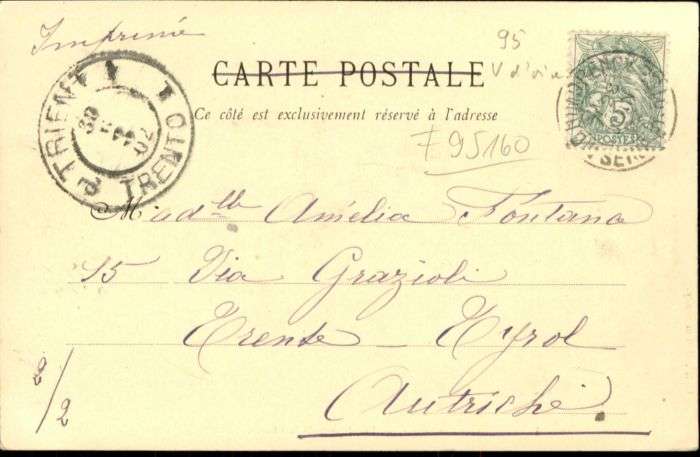 Imprimé
95
V d'oise
CARTE POSTALE
Ce côté est exclusivement réservé à l'adresse
F 95160
TRIENT 1
TRENTO 1
5
POSTES
MONTMORENCY
Madlle Amélia Fontana
15 Via Grazioli
Trente - Tyrol
Autriche
2/2